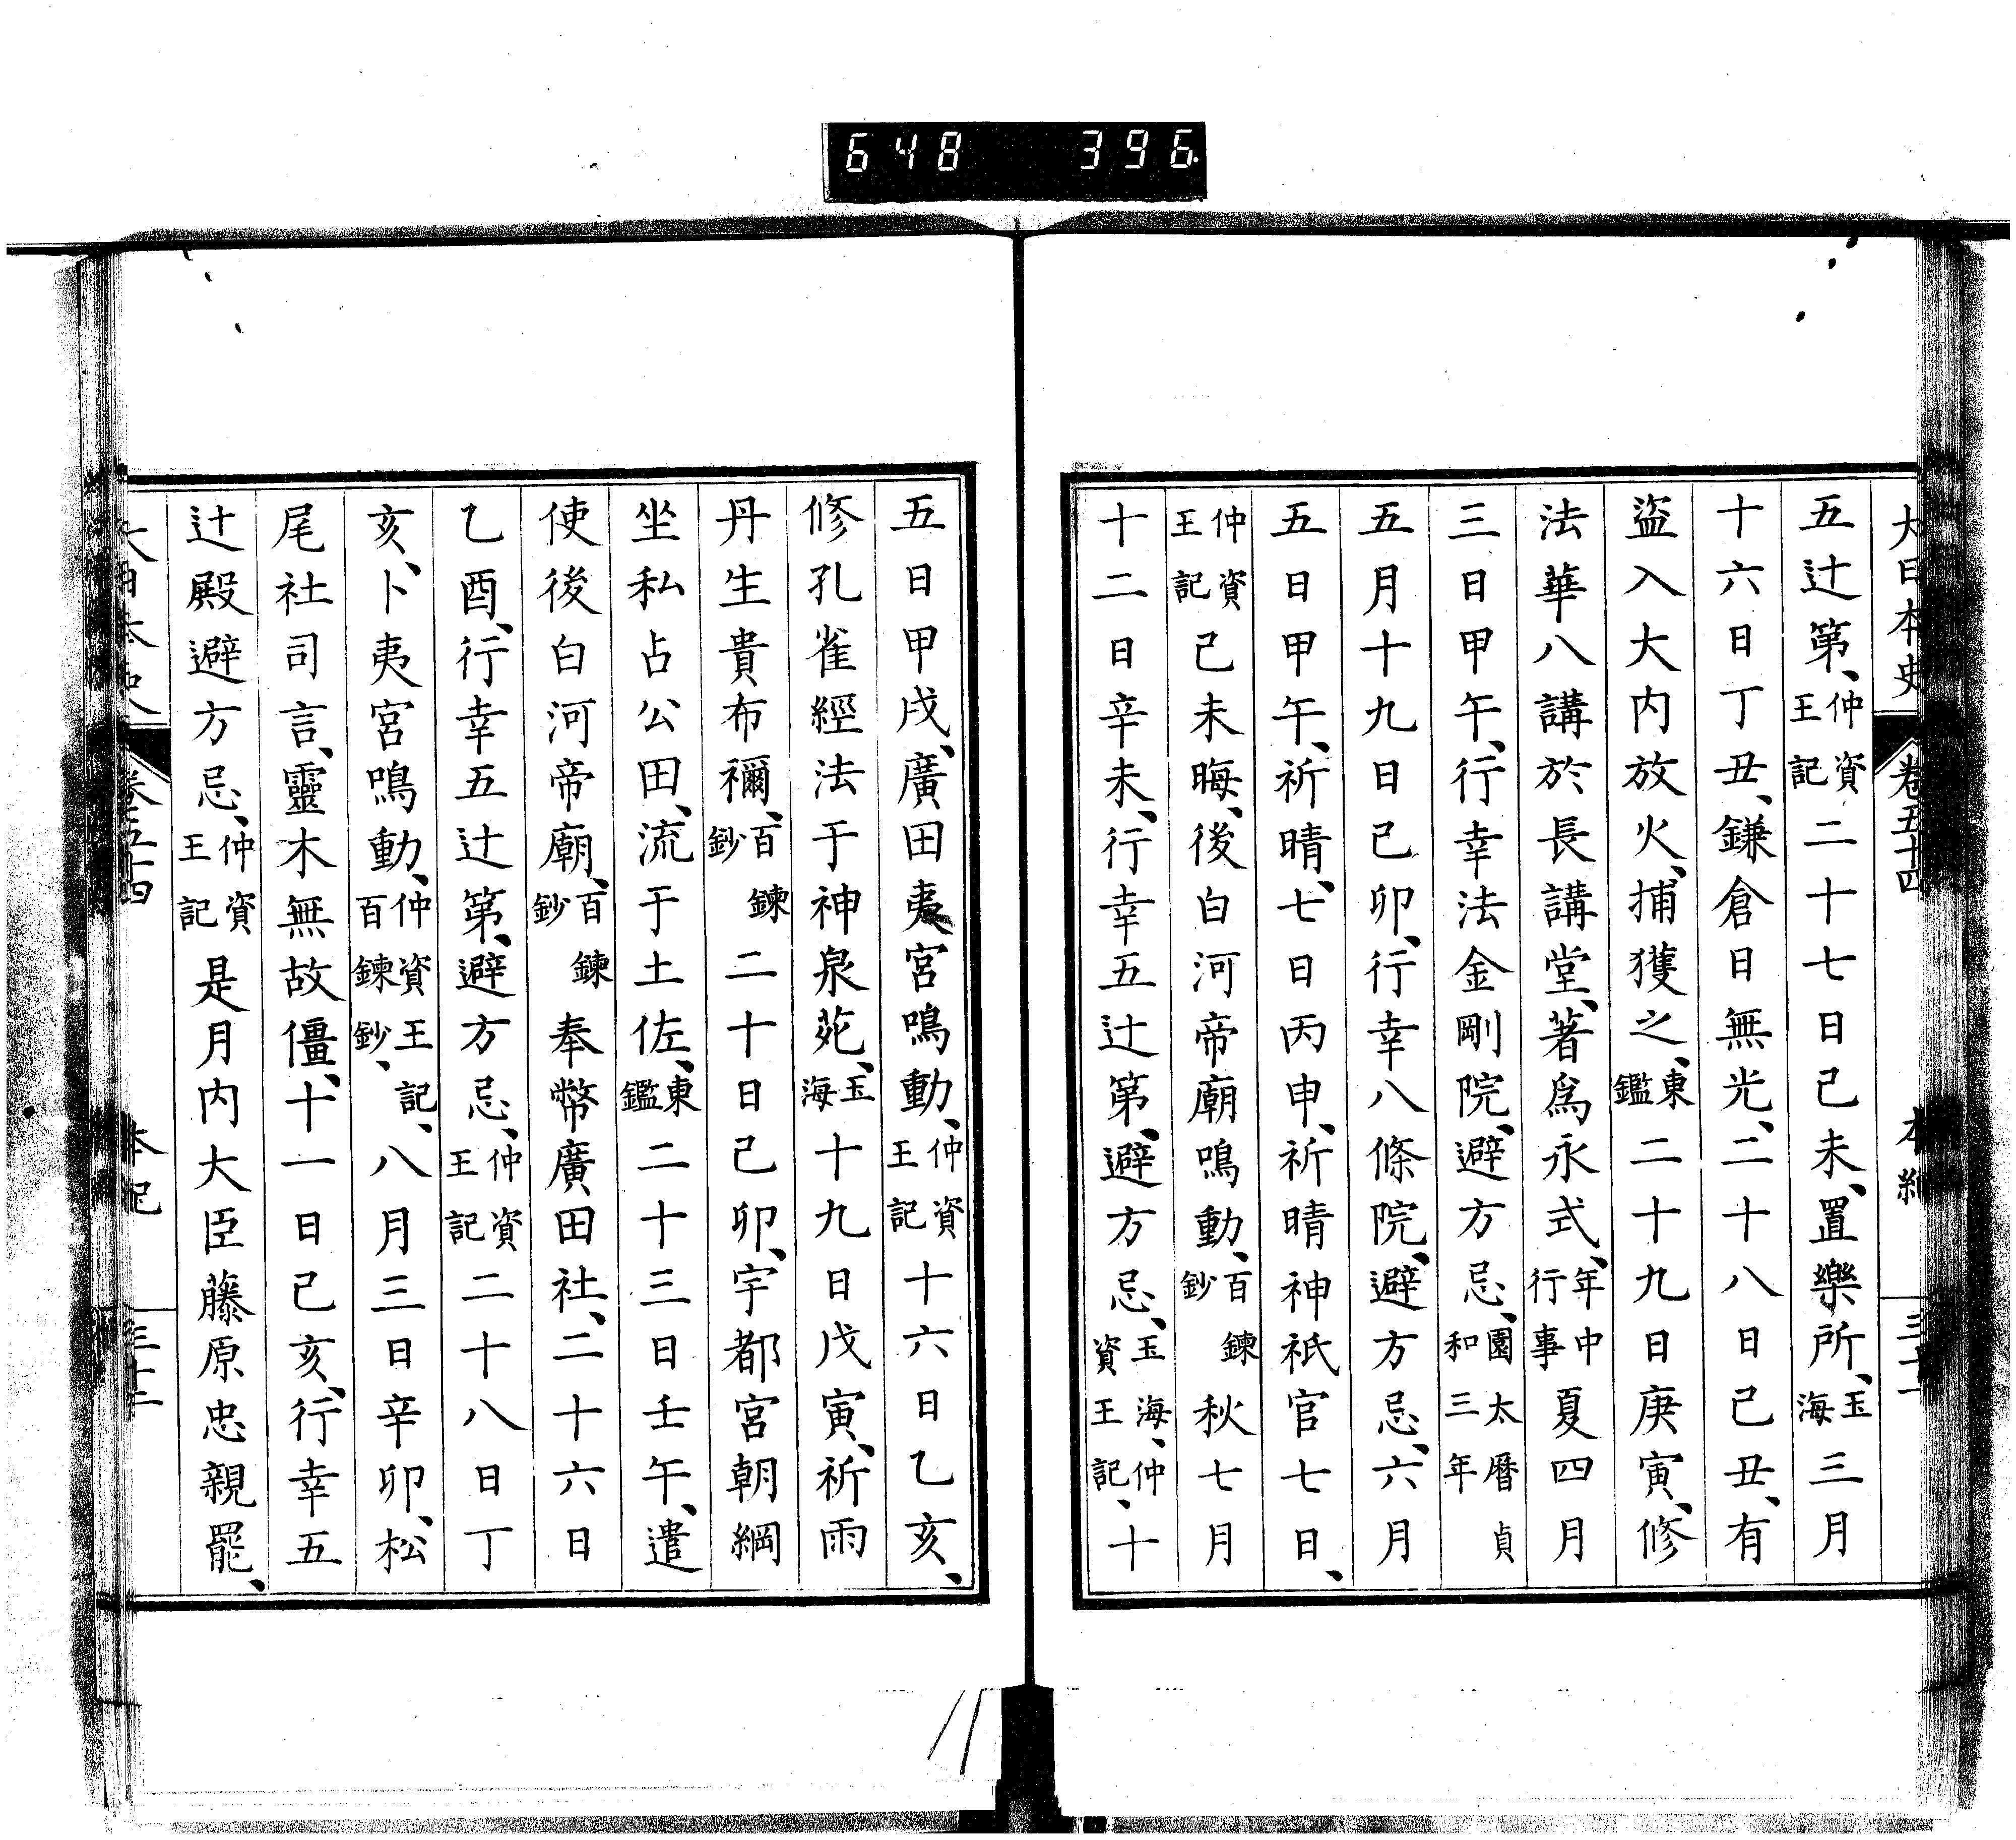 648 396
大日本史 卷五十四 本紀
五辻第、仲資王記二十七日己未、置樂所、玉海三月
十六日丁丑、鎌倉日無光、二十八日己丑、有
盜入大内放火、捕獲之、東鑑二十九日庚寅、修
法華八講於長講堂、著爲永式、年中行事夏四月
三日甲午、行幸法金剛院、避方忌、園太曆貞和三年
五月十九日己卯、行幸八條院、避方忌、六月
五日甲午、祈晴、七日丙申、祈晴神祇官七日、
仲資王記己未晦、後白河帝廟鳴動、百鍊鈔秋七月
十二日辛未、行幸五辻第、避方忌、玉海、仲資王記、十
五日甲戌、廣田夷宮鳴動、仲資王記十六日乙亥、
修孔雀經法于神泉苑、玉海十九日戊寅、祈雨
丹生貴布禰、百鍊鈔二十日己卯、宇都宮朝綱
坐私占公田、流于土佐、東鑑二十三日壬午、遣
使後白河帝廟、百鍊鈔奉幣廣田社、二十六日
乙酉、行幸五辻第、避方忌、仲資王記二十八日丁
亥、卜夷宮鳴動、仲資王記、百鍊鈔、八月三日辛卯、松
尾社司言、靈木無故僵、十一日己亥、行幸五
辻殿避方忌、仲資王記是月内大臣藤原忠親罷、
大日本史 卷五十四 本紀